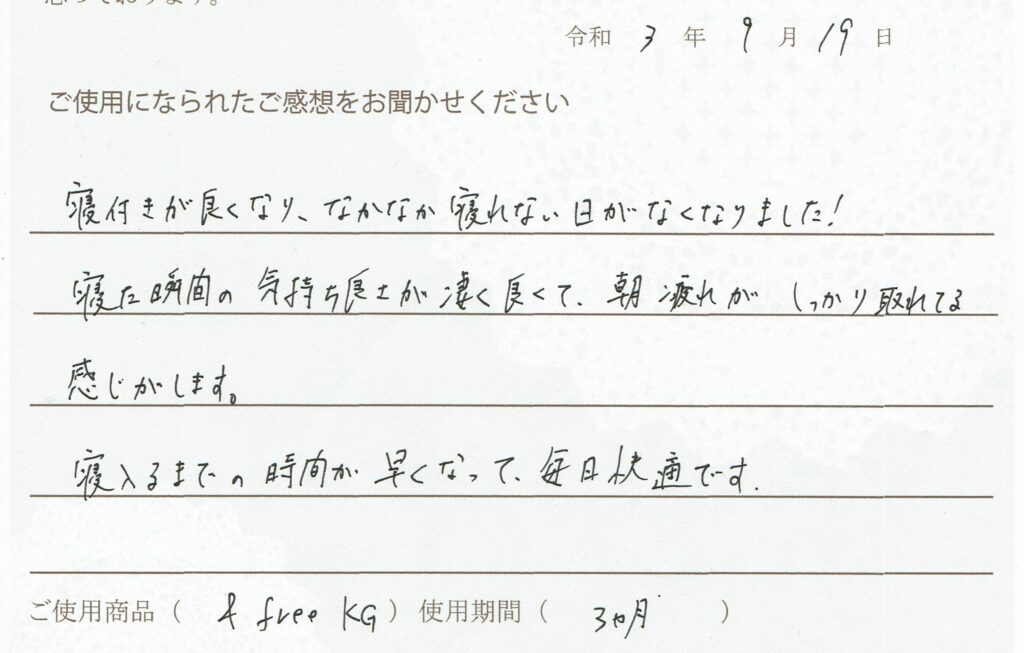 思っております。
令和 3 年 9 月 19 日
ご使用になられたご感想をお聞かせください
寝付きが良くなり、なかなか寝れない日がなくなりました!
寝た瞬間の気持ち良さが凄く良くて、朝疲れが しっかり取れてる
感じがします。
寝入るまでの時間が早くなって、毎日快適です.
ご使用商品( & free KG ) 使用期間( 3ヵ月 )